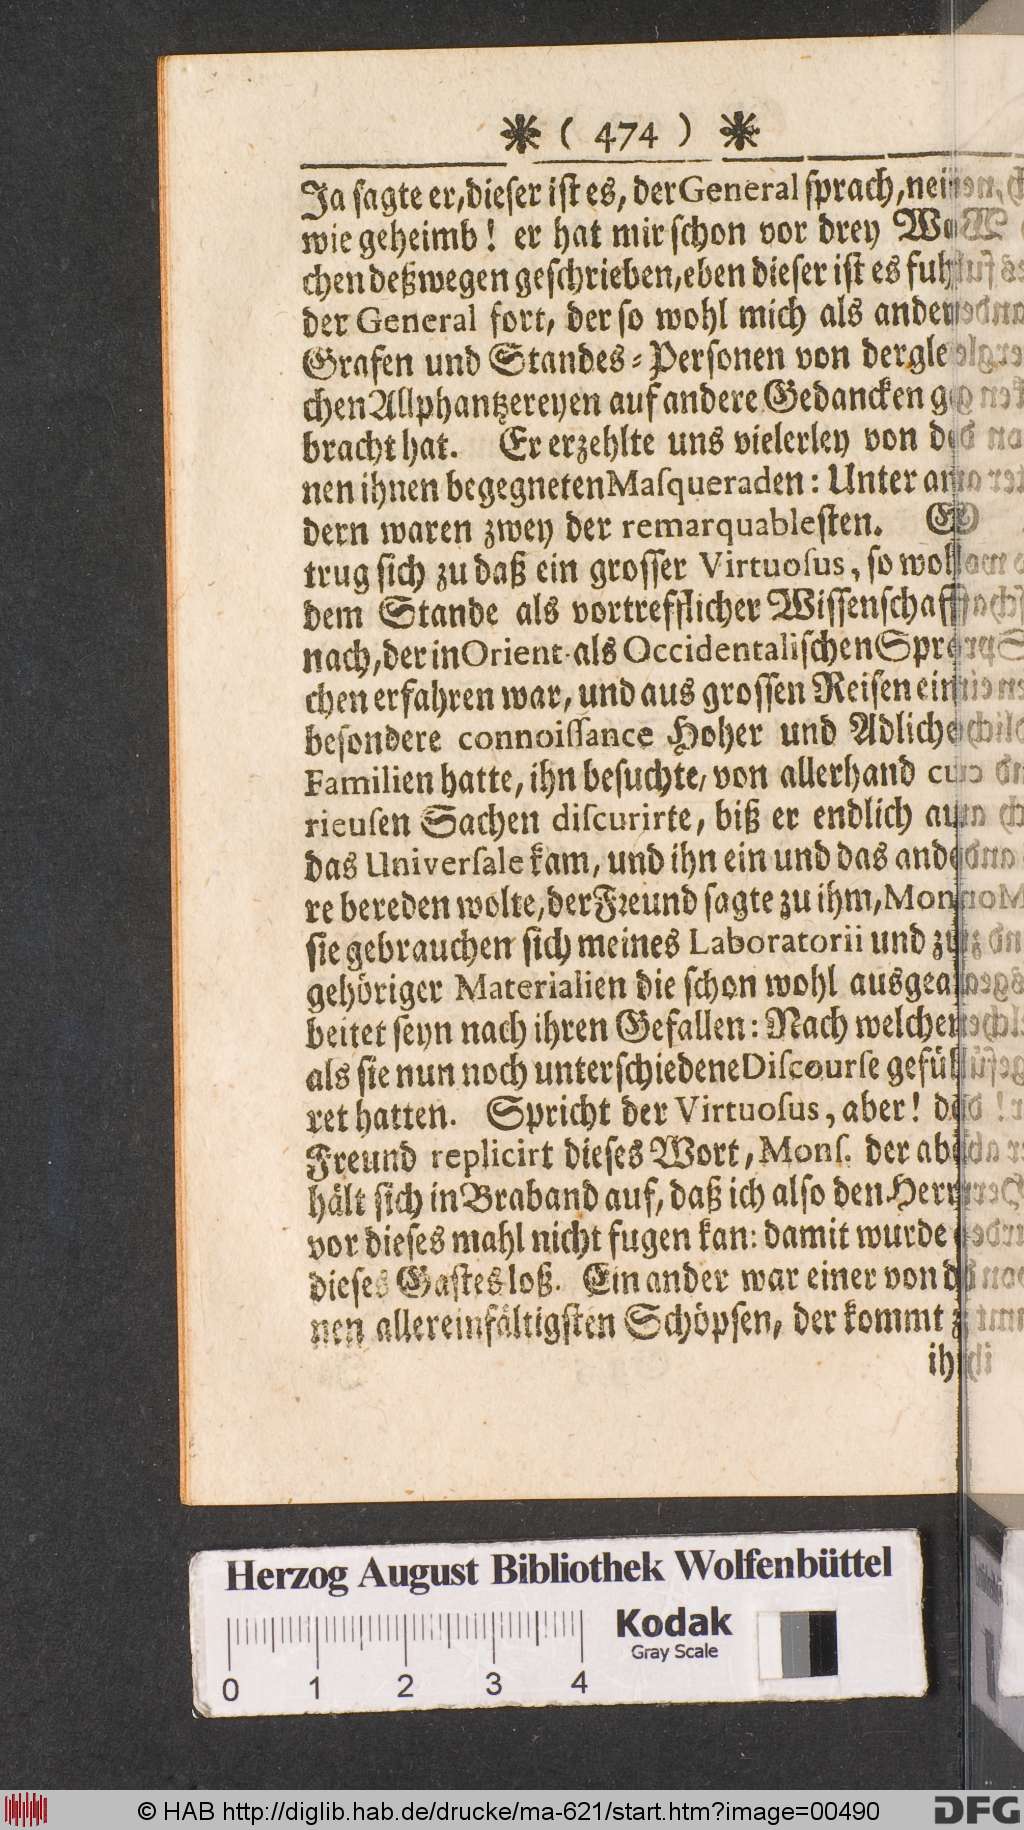 * ( 474 ) *
Ja sagte er, dieser ist es, der General sprach, nein,
wie geheimb! er hat mir schon vor drey Wo
chen deßwegen geschrieben, eben dieser ist es fuhr
der General fort, der so wohl mich als andere
Grafen und Standes-Personen von derglei
chen Allphantzereyen auf andere Gedancken ge
bracht hat. Er erzehlte uns vielerley von de
nen ihnen begegneten Masqueraden: Unter an
dern waren zwey der remarquablesten. Es
trug sich zu daß ein grosser Virtuosus, so wohl
dem Stande als vortrefflicher Wissenschafft
nach, der in Orient- als Occidentalischen Spra
chen erfahren war, und aus grossen Reisen eine
besondere connoissance Hoher und Adlicher
Familien hatte, ihn besuchte, von allerhand cu
rieusen Sachen discurirte, biß er endlich auf
das Universale kam, und ihn ein und das ande
re bereden wolte, der Freund sagte zu ihm, Mons.
sie gebrauchen sich meines Laboratorii und zu
gehöriger Materialien die schon wohl ausgear
beitet seyn nach ihren Gefallen: Nach welchen
als sie nun noch unterschiedene Discourse gefüh
ret hatten. Spricht der Virtuosus, aber! der
Freund replicirt dieses Wort, Mons. der aber
hält sich in Braband auf, daß ich also den Herrn
vor dieses mahl nicht fugen kan: damit wurde er
dieses Gastes loß. Ein ander war einer von de
nen allereinfältigsten Schöpsen, der kommt zu
ihm
Herzog August Bibliothek Wolfenbüttel
Kodak
Gray Scale
0 1 2 3 4
© HAB http://diglib.hab.de/drucke/ma-621/start.htm?image=00490
DFG